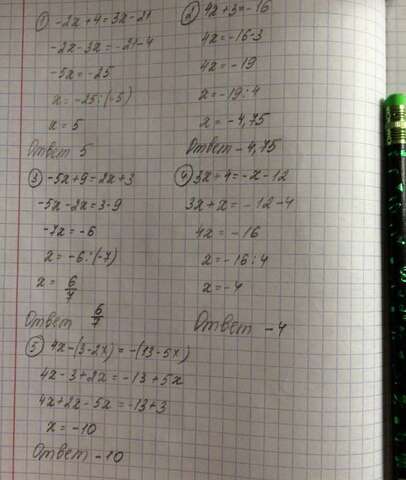 ① -2x+4=3x-21
-2x-3x=-21-4
-5x=-25
x=-25:(-5)
x=5
Ответ 5
② 4x+3=-16
4x=-16-3
4x=-19
x=-19:4
x=-4,75
Ответ -4,75
③ -5x+9=2x+3
-5x-2x=3-9
-7x=-6
x=-6:(-7)
x=6/7
Ответ 6/7
④ 3x+4=-x-12
3x+x=-12-4
4x=-16
x=-16:4
x=-4
Ответ -4
⑤ 4x-(3-2x)=-(13-5x)
4x-3+2x=-13+5x
4x+2x-5x=-13+3
x=-10
Ответ -10